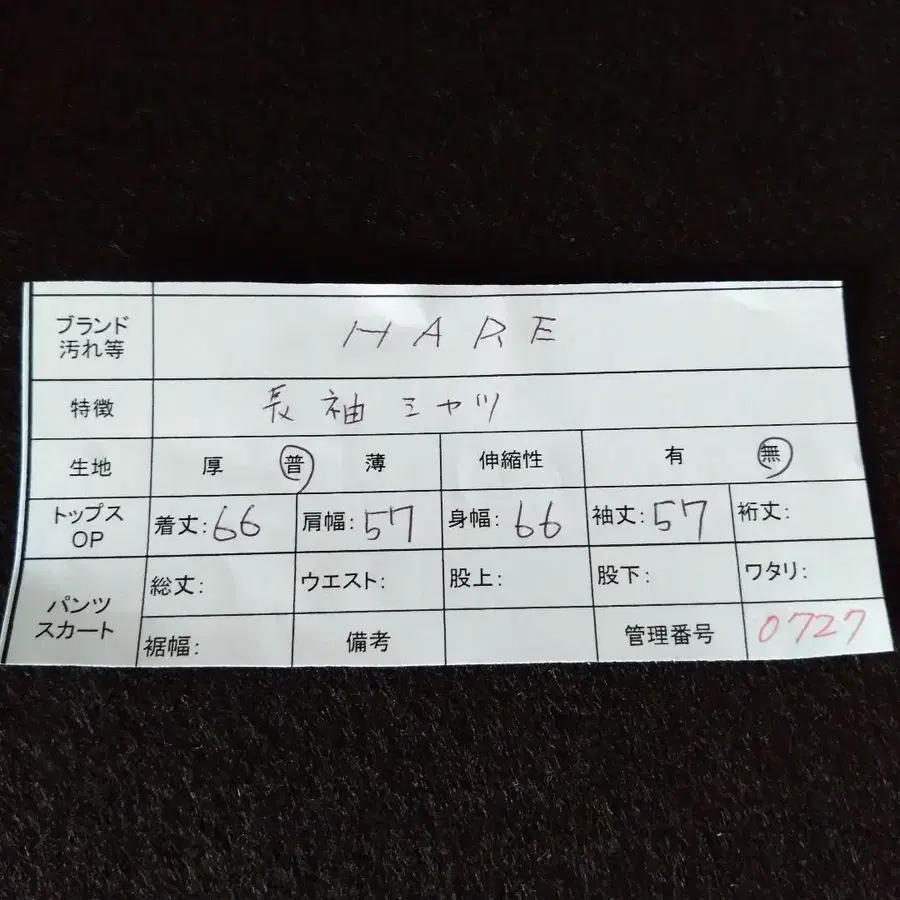 ブランド
汚れ等 HARE
特徴 長袖シャツ
生地 厚 普 薄 伸縮性 有 無
トップス
OP 着丈:66 肩幅:57 身幅:66 袖丈:57 裄丈:
パンツ
スカート 総丈: ウエスト: 股上: 股下: ワタリ:
裾幅: 備考 管理番号 0727